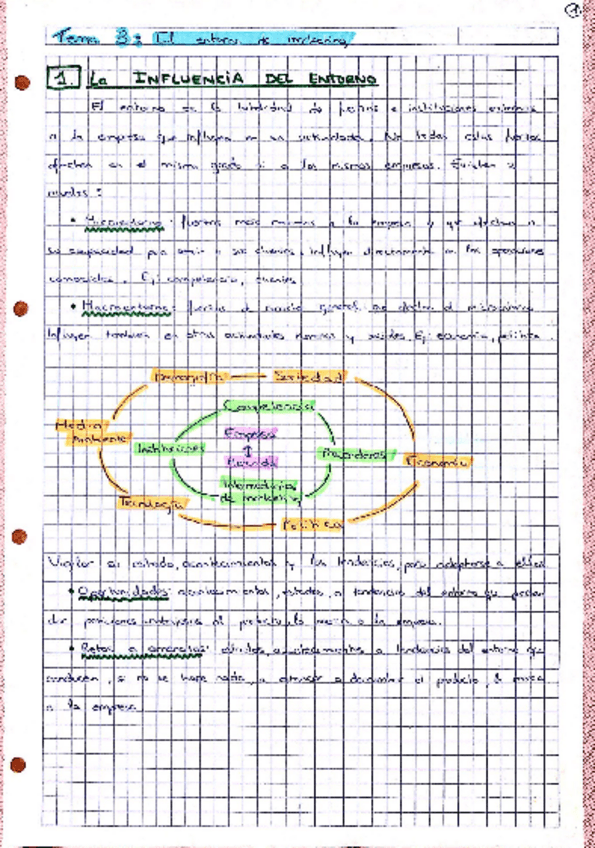 1
Tema 3: El entorno de marketing
1 La INFLUENCIA DEL ENTORNO
El entorno es la totalidad de fuerzas e instituciones externas
a la empresa que influyen en su actividad. No todas estas fuerzas
afectan en el mismo grado ni a las mismas empresas. Existen 2
niveles:
• Microentorno: fuerzas más a la empresa y que afectan a
su capacidad para servir a sus clientes, influyen directamente en las operaciones
comerciales. Ej: competencia, clientes
• Macroentorno: fuerzas de general que afectan al microentorno
Influyen también en otras actividades humanas y sociales. Ej: economía, política
Demografía Sociedad
Competencia
Medio
Ambiente
Empresa
Instituciones
Proveedores
Economía
Mercado
Intermediarios
de marketing
Tecnología
Política
Vigilar su estado, acontecimientos y las tendencias, para adaptarse a ellos
• Oportunidades: acontecimientos, estados, o tendencias del entorno que pueden
dar posiciones al producto, la marca o la empresa.
• Retos o amenazas: estados, acontecimientos o tendencias del entorno que
conducen, si no se hace nada, a o al producto, la marca
o la empresa